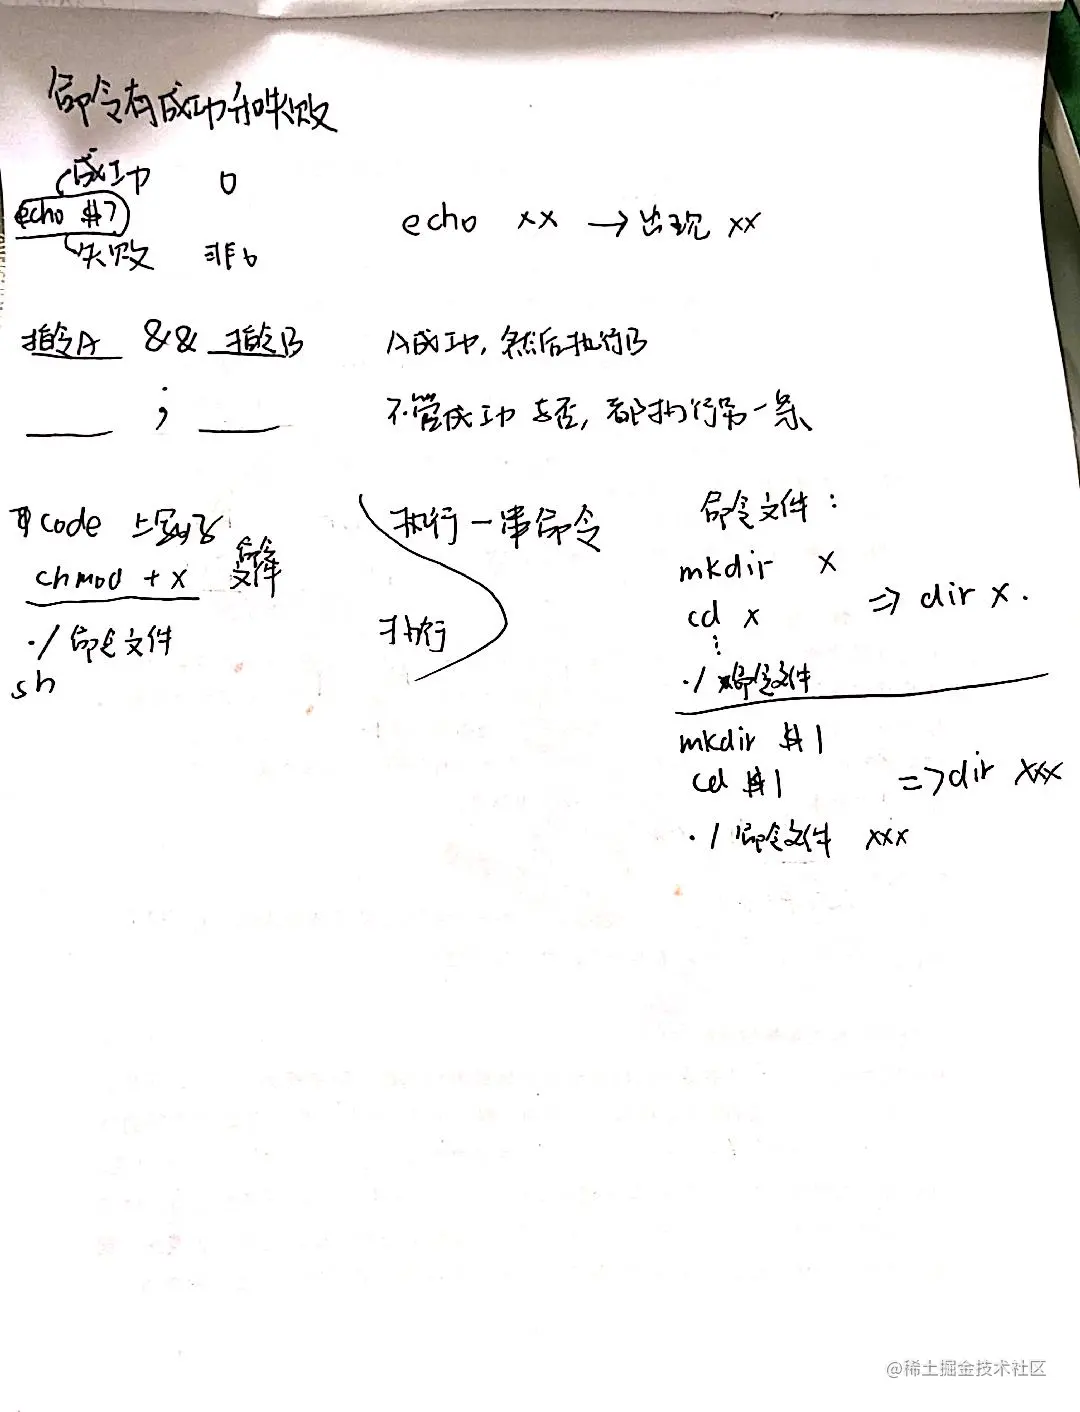 命令有成功和失败
成功 0
echo $?
失败 非0
echo xx → 出现 xx
指令A && 指令B A成功,然后执行B
; 不管成功与否,都执行另一条
用code 上写好
chmod +x 命令文件
./ 命令文件
sh
执行一串命令
执行
命令文件:
mkdir x
cd x
⇒ dir x.
./ 命令文件
mkdir $1
cd $1
⇒ dir xxx
./ 命令文件 xxx
@稀土掘金技术社区